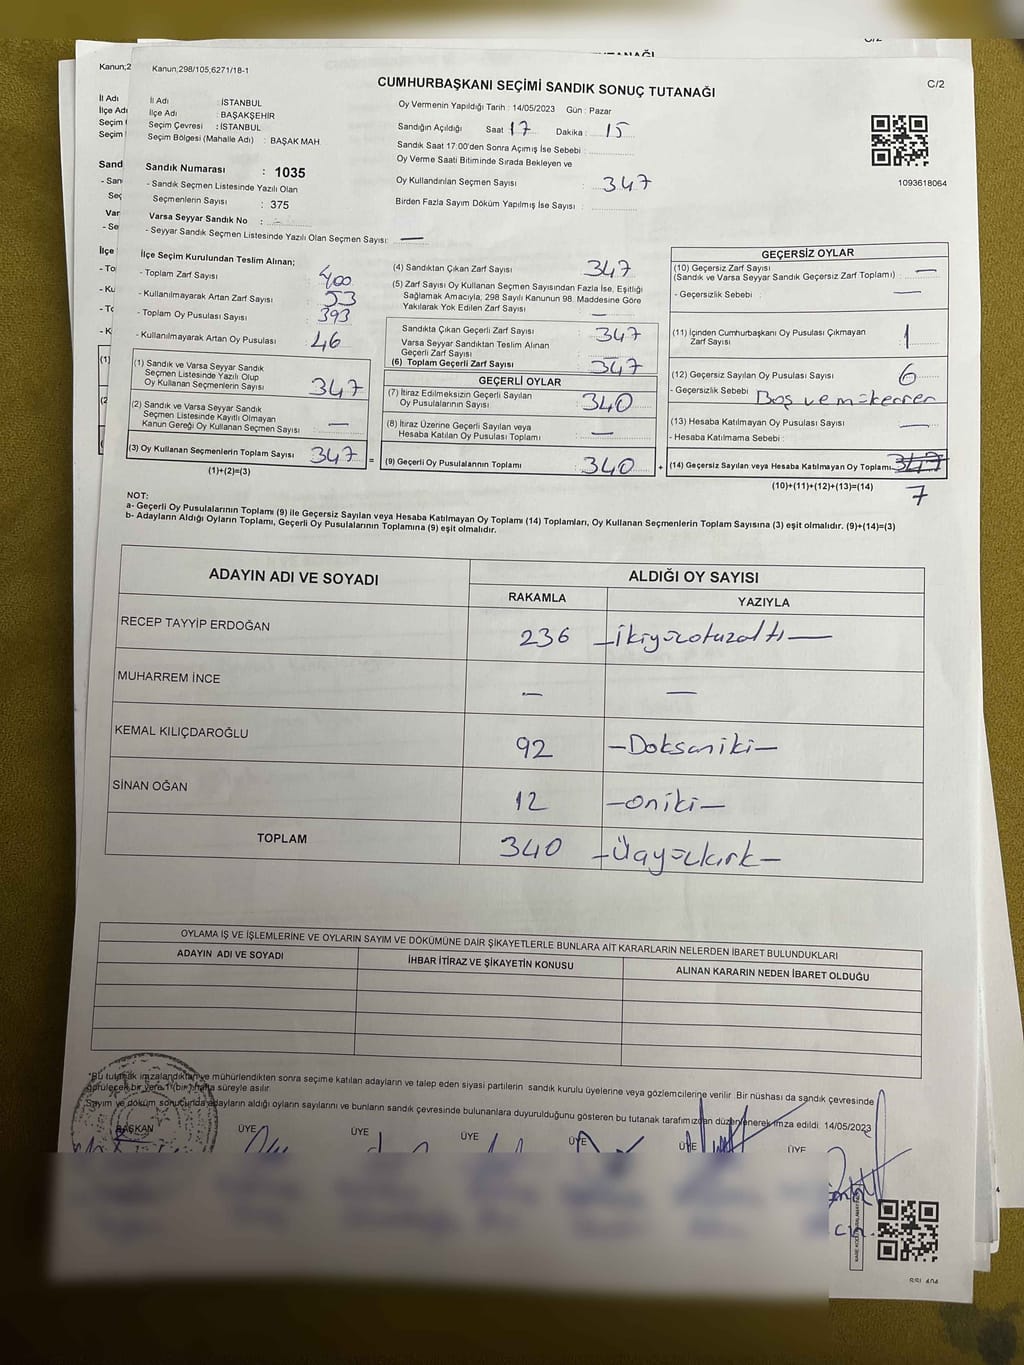 C/2
Kanun,2
Kanun,298/105,6271/18-1
CUMHURBAŞKANI SEÇİMİ SANDIK SONUÇ TUTANAĞI
C/2
İl Adı : İSTANBUL
İlçe Adı : BAŞAKŞEHİR
Seçim Çevresi : İSTANBUL
Seçim Bölgesi (Mahalle Adı) : BAŞAK MAH
Oy Vermenin Yapıldığı Tarih : 14/05/2023 Gün : Pazar
Sandığın Açıldığı Saat : 17 Dakika : 15
Sandık Saat 17:00'den Sonra Açımış İse Sebebi :
Oy Verme Saati Bitiminde Sırada Bekleyen ve
Oy Kullandırılan Seçmen Sayısı : 347
Birden Fazla Sayım Döküm Yapılmış İse Sayısı :
1093618064
Sandık Numarası : 1035
- Sandık Seçmen Listesinde Yazılı Olan
Seçmenlerin Sayısı : 375
Varsa Seyyar Sandık No : -
- Seyyar Sandık Seçmen Listesinde Yazılı Olan Seçmen Sayısı: —
İlçe Seçim Kurulundan Teslim Alınan;
- Toplam Zarf Sayısı : 400
- Kullanılmayarak Artan Zarf Sayısı : 53
- Toplam Oy Pusulası Sayısı : 393
- Kullanılmayarak Artan Oy Pusulası : 46
(1) Sandık ve Varsa Seyyar Sandık
Seçmen Listesinde Yazılı Olup
Oy Kullanan Seçmenlerin Sayısı : 347
(2) Sandık ve Varsa Seyyar Sandık
Seçmen Listesinde Kayıtlı Olmayan
Kanun Gereği Oy Kullanan Seçmen Sayısı : —
(3) Oy Kullanan Seçmenlerin Toplam Sayısı : 347 =
(1)+(2)=(3)
(4) Sandıktan Çıkan Zarf Sayısı : 347
(5) Zarf Sayısı Oy Kullanan Seçmen Sayısından Fazla İse, Eşitliği
Sağlamak Amacıyla, 298 Sayılı Kanunun 98. Maddesine Göre
Yakılarak Yok Edilen Zarf Sayısı : —
Sandıkta Çıkan Geçerli Zarf Sayısı : 347
Varsa Seyyar Sandıktan Teslim Alınan
Geçerli Zarf Sayısı
(6) Toplam Geçerli Zarf Sayısı : 347
GEÇERLİ OYLAR
(7) İtiraz Edilmeksizin Geçerli Sayılan
Oy Pusulalarının Sayısı : 340
(8) İtiraz Üzerine Geçerli Sayılan veya
Hesaba Katılan Oy Pusulası Toplamı : —
(9) Geçerli Oy Pusulalarının Toplamı : 340 +
GEÇERSİZ OYLAR
(10) Geçersiz Zarf Sayısı
(Sandık ve Varsa Seyyar Sandık Geçersiz Zarf Toplamı) : —
- Geçersizlik Sebebi : —
(11) İçinden Cumhurbaşkanı Oy Pusulası Çıkmayan
Zarf Sayısı : 1
(12) Geçersiz Sayılan Oy Pusulası Sayısı : 6
- Geçersizlik Sebebi : Boş ve mükerrer
(13) Hesaba Katılmayan Oy Pusulası Sayısı : —
- Hesaba Katılmama Sebebi :
(14) Geçersiz Sayılan veya Hesaba Katılmayan Oy Toplamı: 347
(10)+(11)+(12)+(13)=(14) 7
NOT:
a- Geçerli Oy Pusulalarının Toplamı (9) ile Geçersiz Sayılan veya Hesaba Katılmayan Oy Toplamı (14) Toplamları, Oy Kullanan Seçmenlerin Toplam Sayısına (3) eşit olmalıdır. (9)+(14)=(3)
b- Adayların Aldığı Oyların Toplamı, Geçerli Oy Pusulalarının Toplamına (9) eşit olmalıdır.
ADAYIN ADI VE SOYADI ALDIĞI OY SAYISI
RAKAMLA YAZIYLA
RECEP TAYYİP ERDOĞAN 236 -İkiyüzotuzaltı-
MUHARREM İNCE — —
KEMAL KILIÇDAROĞLU 92 -Doksaniki-
SİNAN OĞAN 12 -oniki-
TOPLAM 340 -Üçyüzkırk-
OYLAMA İŞ VE İŞLEMLERİNE VE OYLARIN SAYIM VE DÖKÜMÜNE DAİR ŞİKAYETLERLE BUNLARA AİT KARARLARIN NELERDEN İBARET BULUNDUKLARI
ADAYIN ADI VE SOYADI İHBAR İTİRAZ VE ŞİKAYETİN KONUSU ALINAN KARARIN NEDEN İBARET OLDUĞU
*Bu tutanak imzalandıktan ve mühürlendikten sonra seçime katılan adayların ve talep eden siyasi partilerin sandık kurulu üyelerine veya gözlemcilerine verilir. Bir nüshası da sandık çevresinde
görülecek bir yere 1 (bir) hafta süreyle asılır.
Sayım ve döküm sonucunda adayların aldığı oyların sayılarını ve bunların sandık çevresinde bulunanlara duyurulduğunu gösteren bu tutanak tarafımızdan düzenlenerek imza edildi. 14/05/2023
BAŞKAN ÜYE ÜYE ÜYE ÜYE ÜYE ÜYE